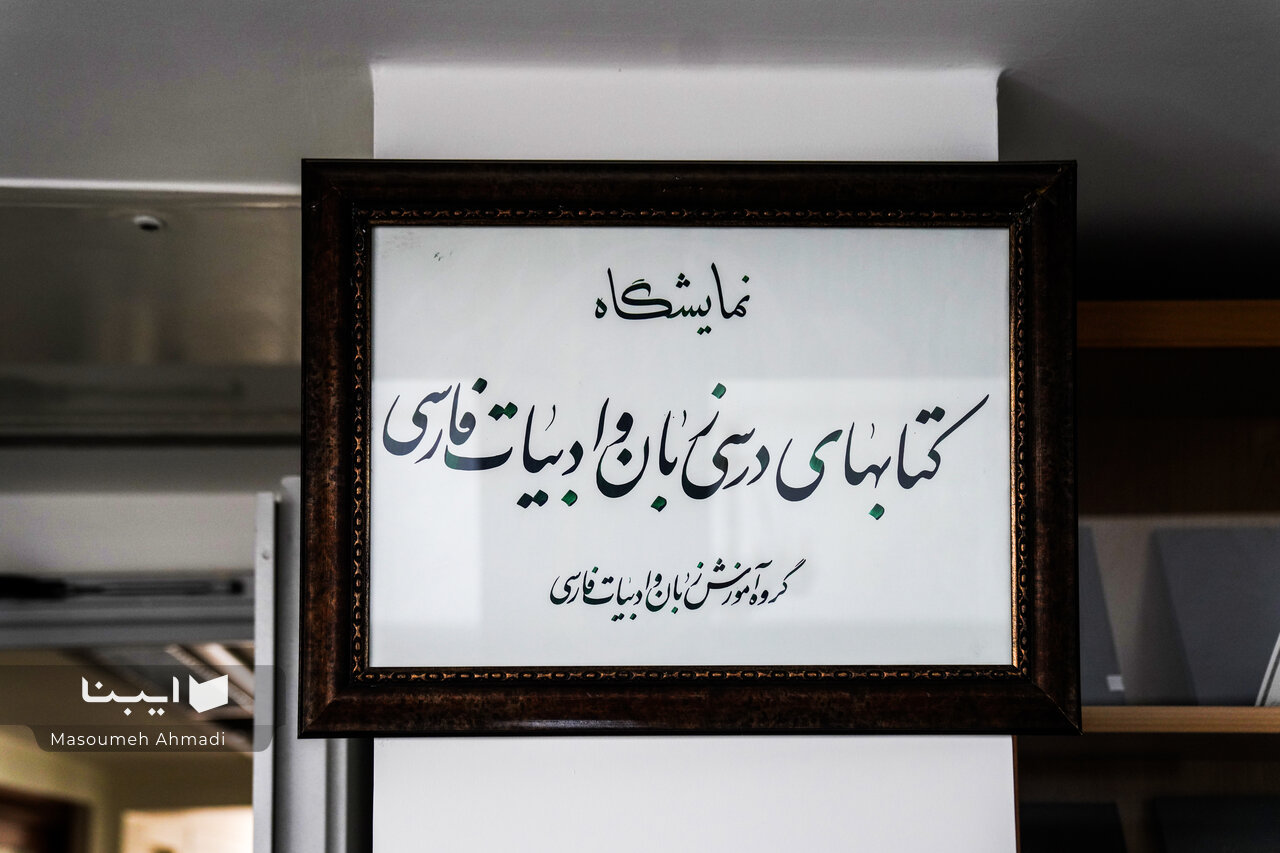 نمایشگاه
کتابهای درسی زبان و ادبیات فارسی
گروه آموزش زبان و ادبیات فارسی
ایبنا
Masoumeh Ahmadi